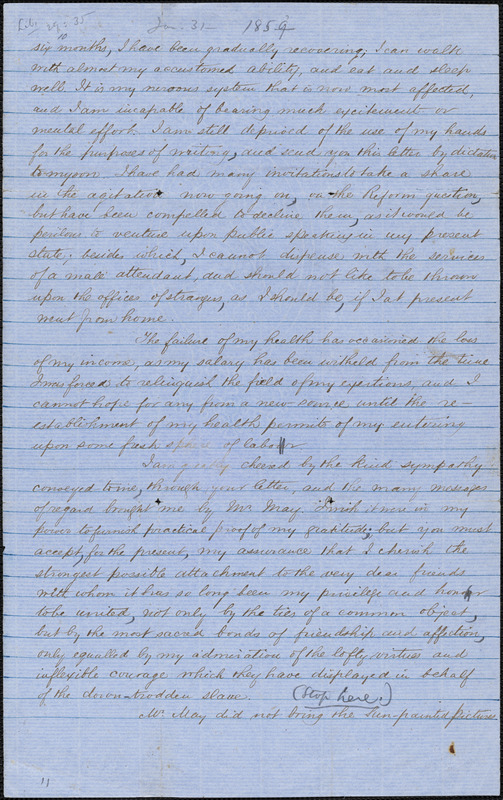 Lib. 29:35 Jan. 31 — 1859
six months, I have been gradually recovering; I can walk
with almost my accustomed ability, and eat and sleep
well. It is my nervous system that is now most affected,
and I am incapable of bearing much excitement or
mental effort. I am still deprived of the use of my hands
for the purposes of writing, and send you this letter by dictation
to my son. I have had many invitations to take a share
in the agitation now going on, on the Reform question,
but have been compelled to decline them, as it would be
perilous to venture upon public speaking in my present
state; besides which, I cannot dispense with the services
of a male attendant, and should not like to be thrown
upon the offices of strangers, as I should be, if I at present
went from home.
The failure of my health has occasioned the loss
of my income, as my salary has been witheld from the time
I was forced to relinquish the field of my exertions, and I
cannot hope for any from a new source until the re-
establishment of my health permits of my entering
upon some fresh sphere of labor.
I am greatly cheered by the kind sympathy
conveyed to me, through your letter, and the many messages
of regard brought me by Mr. May. I wish it were in my
power to furnish practical proof of my gratitude; but you must
accept, for the present, my assurance that I cherish the
strongest possible attachment to the very dear friends
with whom it has so long been my privilege and honor
to be united, not only by the ties of a common object,
but by the most sacred bonds of friendship and affection,
only equalled by my admiration of the lofty virtues and
inflexible courage which they have displayed in behalf
of the down-trodden slave. (Stop here.)
Mr. May did not bring the sun-painted pictures
11